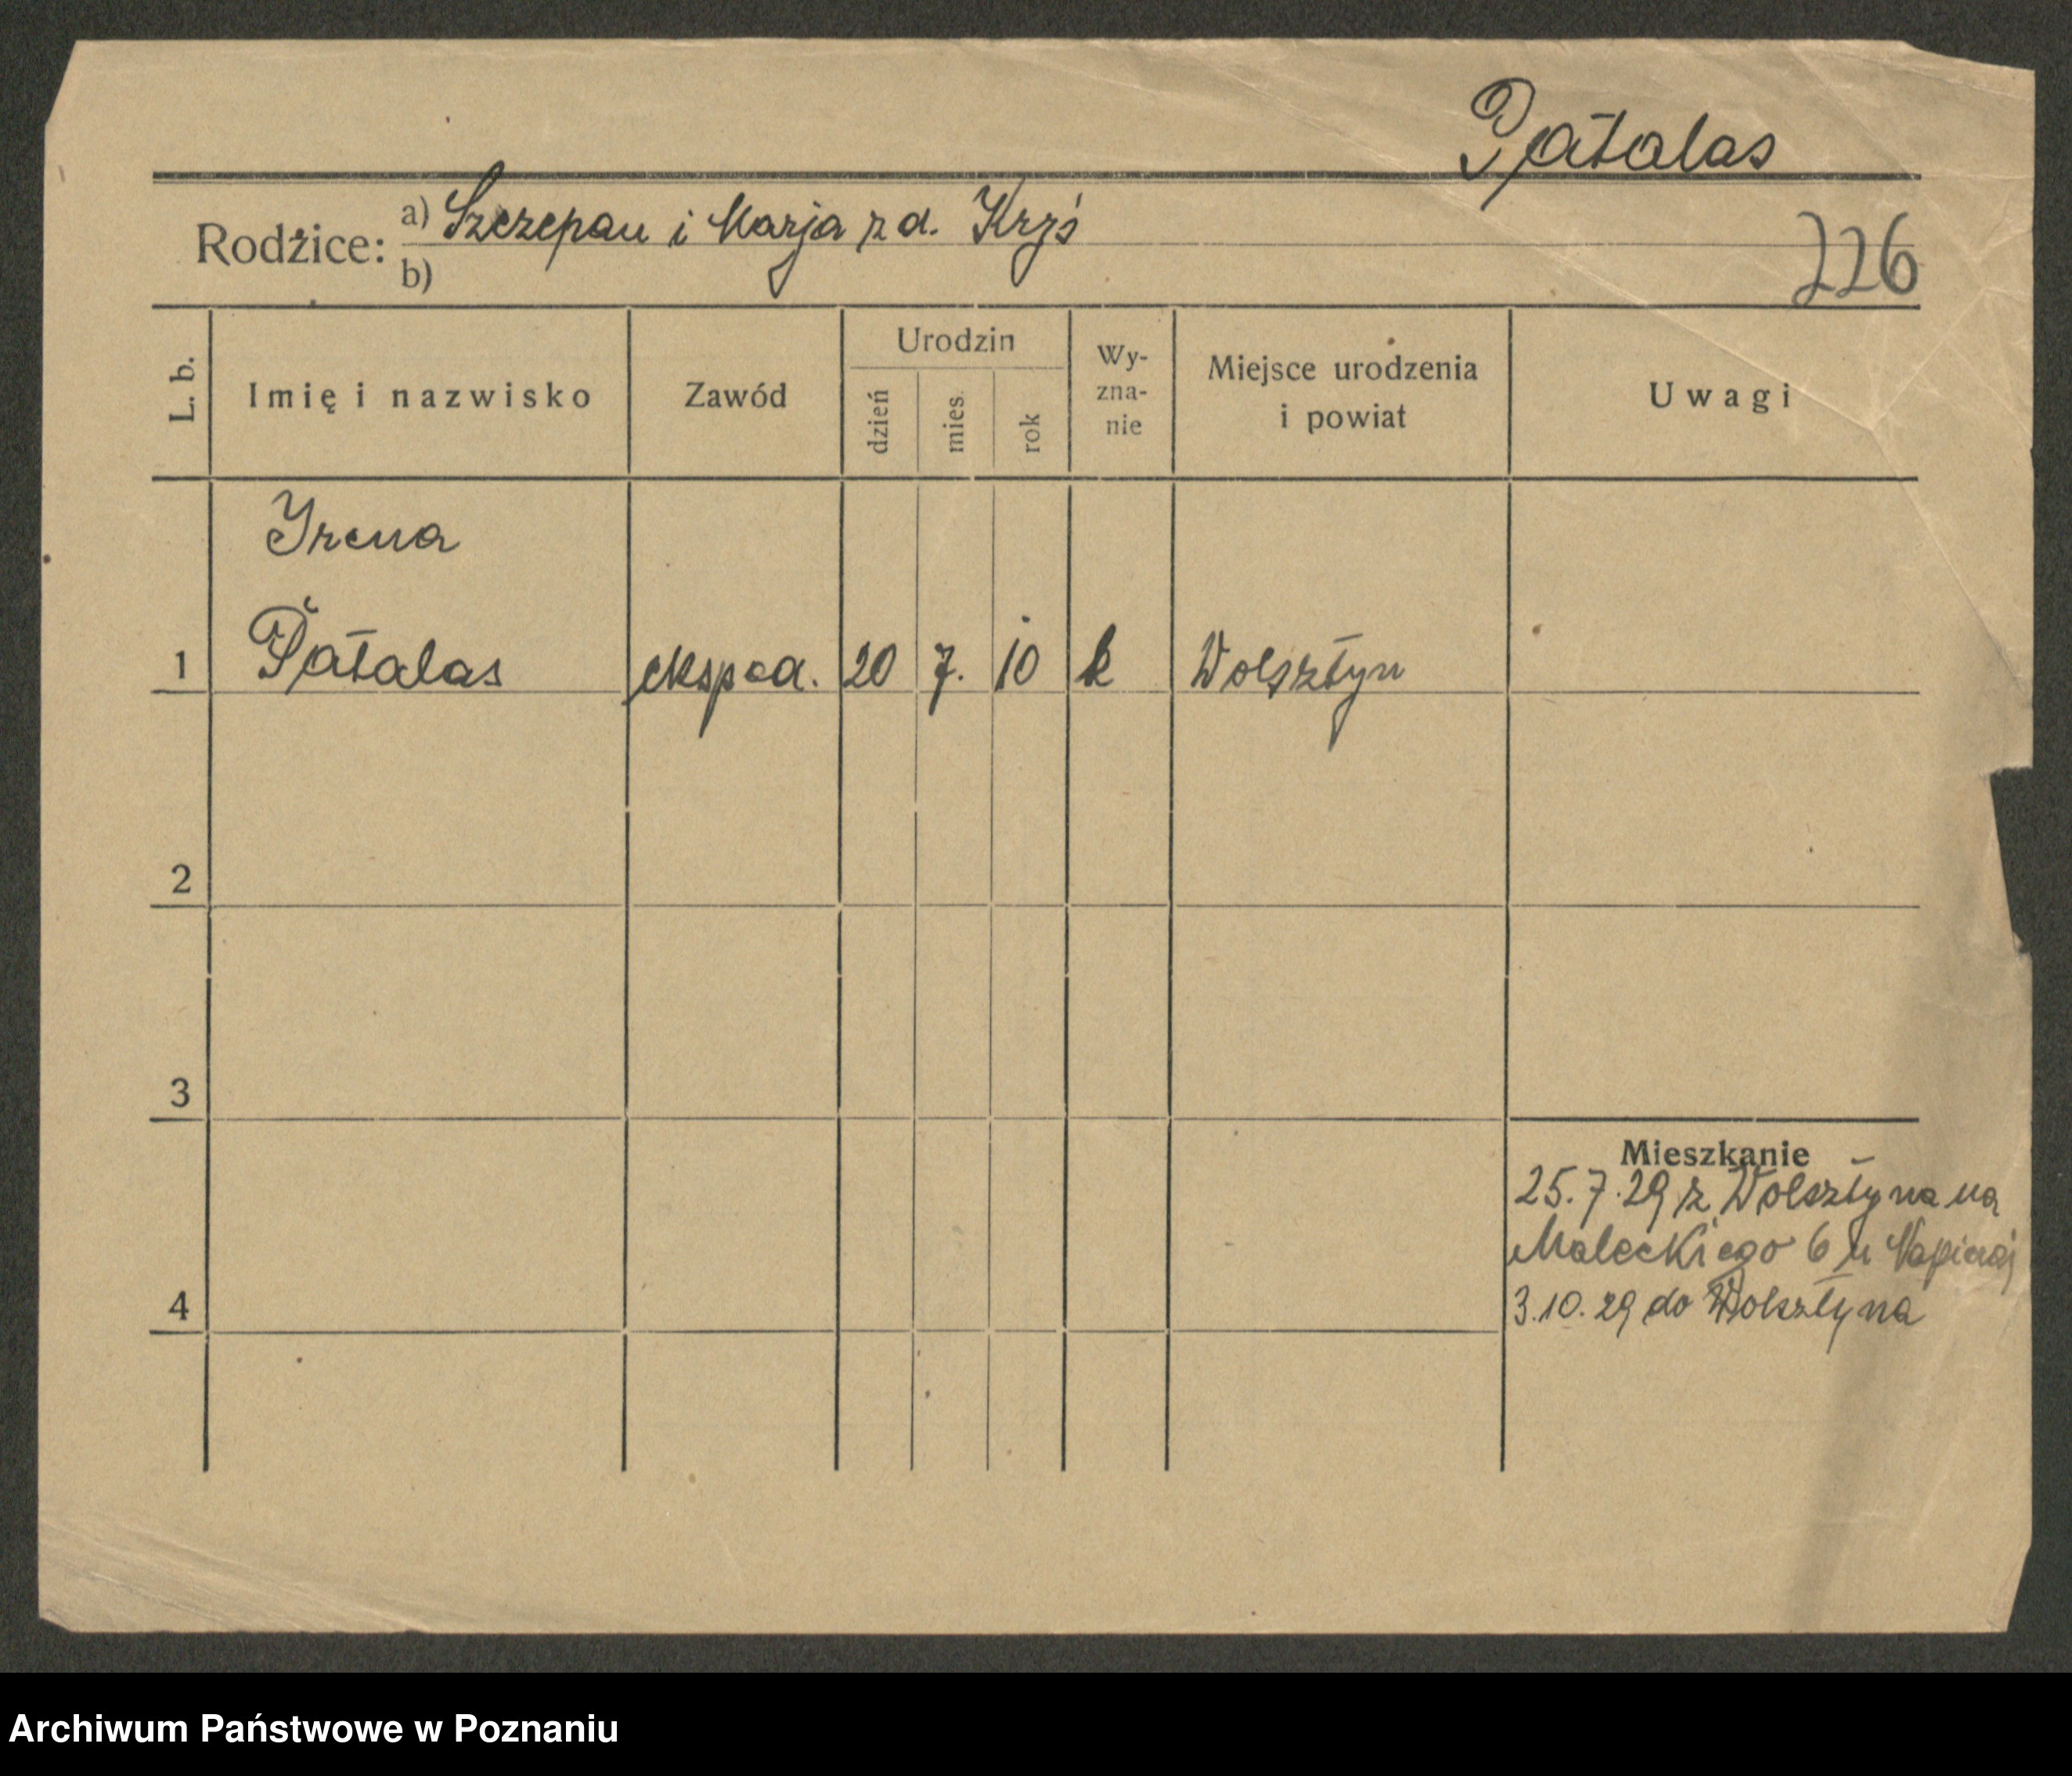 Patalas
Rodzice: a) Szczepan i Marja z d. Krzś
b)
226
L. b.
Imię i nazwisko
Zawód
Urodzin
dzień
mies.
rok
Wy-
zna-
nie
Miejsce urodzenia
i powiat
Uwagi
Irena
1 Patalas eksped. 20 7. 10 k Wolsztyn
2
3
Mieszkanie
25.7.29 z Wolsztyna na
Maleckiego 6 u
4
3.10.29 do Wolsztyna
Archiwum Państwowe w Poznaniu